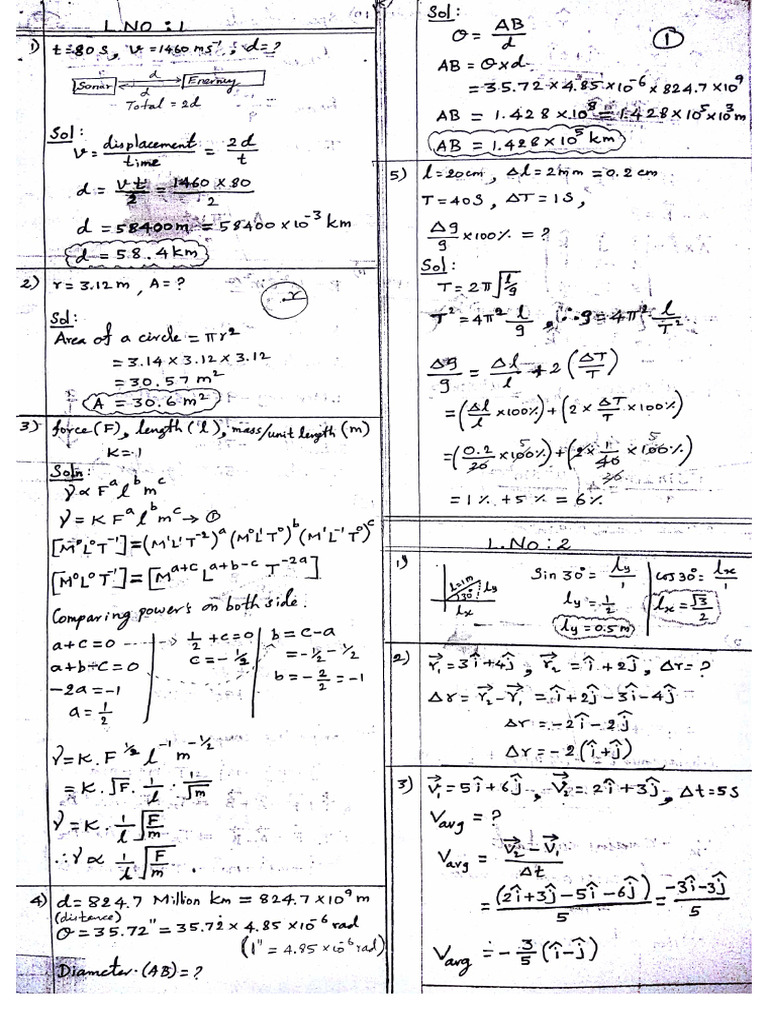 L.NO : 1
1) t=80s, v=1460ms⁻¹; d=?
Sonar d Enermy
d
Total = 2d
Sol:
v = displacement/time = 2d/t
d = vt/2 = 1460×80/2
d = 58400m = 58400×10⁻³ km
d = 58.4km
2) r=3.12m, A=?
.x
Sol:
Area of a circle = πr²
= 3.14 × 3.12 × 3.12
= 30.57 m²
A = 30.6 m²
3) force(F), length(l), mass/unit length (m)
K=1
Soln:
γ ∝ Fᵃ lᵇ mᶜ
γ = K Fᵃ lᵇ mᶜ → ①
[M⁰L⁰T⁻¹] = (M¹L¹T⁻²)ᵃ (M⁰L¹T⁰)ᵇ (M¹L⁻¹T⁰)ᶜ
[M⁰L⁰T⁻¹] = [Mᵃ⁺ᶜ Lᵃ⁺ᵇ⁻ᶜ T⁻²ᵃ]
Comparing powers on both side.
a+c=0
a+b-c=0
-2a=-1
a=1/2
1/2+c=0
c=-1/2
b=c-a
=-1/2-1/2
b=-2/2=-1
γ = K.F^1/2 l⁻¹ m^-1/2
= K.√F. 1/l . 1/√m
γ = K. 1/l √(F/m)
∴ γ ∝ 1/l √(F/m) .
4) d=824.7 Million km = 824.7×10⁹ m
(distance)
θ = 35.72" = 35.72 × 4.85×10⁻⁶ rad
(1" = 4.85×10⁻⁶ rad)
Diameter.(AB)=?
Sol:
θ = AB/d
①
AB = θ×d
= 35.72×4.85×10⁻⁶×824.7×10⁹
AB = 1.428×10⁸ = 1.428×10⁵×10³m
AB = 1.428×10⁵ km
5) l=20cm, Δl=2mm=0.2cm
T=40s, ΔT=1s,
Δg/g ×100% = ?
Sol:
T = 2π√(l/g)
T² = 4π² l/g, ∴ g = 4π² l/T²
Δg/g = Δl/l + 2(ΔT/T)
= (Δl/l ×100%) + (2×ΔT/T×100%)
= (0.2/20 ×100%) + (2×1/40×100%)
= 1% + 5% = 6%
L.NO : 2
1) l=1m 30° ly lx
Sin30° = ly/1
ly = 1/2
ly = 0.5m
cos30° = lx/1
lx = √3/2
2) r⃗₁=3î+4ĵ, r⃗₂=î+2ĵ, Δr=?
Δr = r⃗₂-r⃗₁ = î+2ĵ-3î-4ĵ
Δr = -2î-2ĵ
Δr = -2(î+ĵ)
3) v⃗₁=5î+6ĵ, v⃗₂=2î+3ĵ, Δt=5s
Vavg = ?
Vavg = (v⃗₂-v⃗₁)/Δt
= (2î+3ĵ-5î-6ĵ)/5 = (-3î-3ĵ)/5
Vavg = -3/5 (î-ĵ)